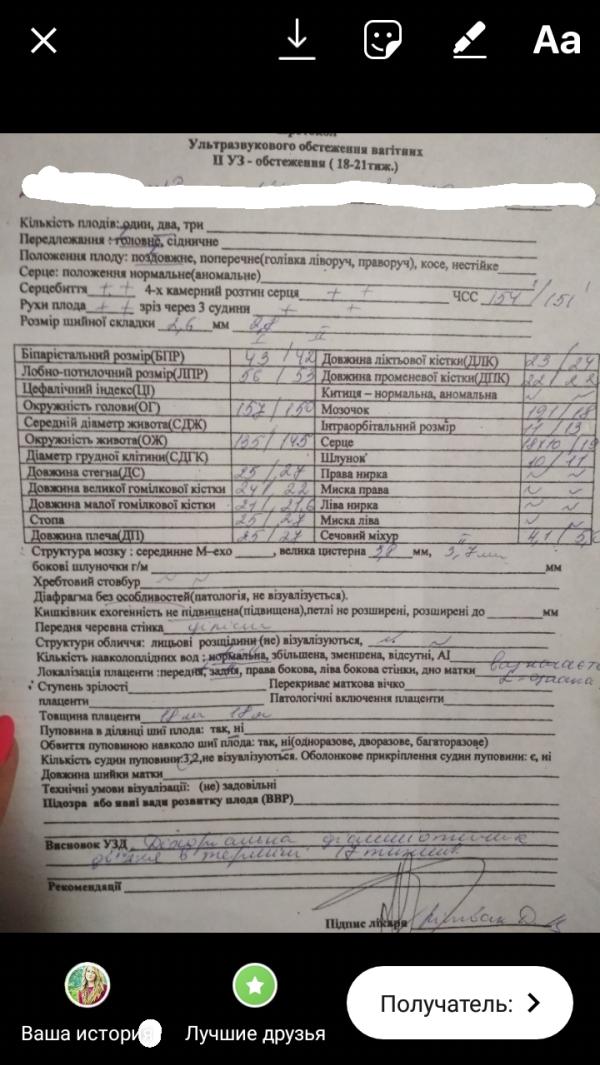 Aa
Протокол
Ультразвукового обстеження вагітних
II УЗ - обстеження ( 18-21тиж.)
Кількість плодів: один, два, три
Передлежання : головне, сідничне
Положення плоду: поздовжне, поперечне(голівка ліворуч, праворуч), косе, нестійке
Серце: положення нормальне(аномальне)
Серцебиття + + 4-х камерний розтин серця + + ЧСС 154 / 151
Рухи плода + + зріз через 3 судини + +
Розмір шийної складки 2,6 мм
I II
Біпарієтальний розмір(БПР) 43 / 42 Довжина ліктьової кістки(ДЛК) 23 / 24
Лобно-потилочний розмір(ЛПР) 56 / 53 Довжина променевої кістки(ДПК) 22 / 22
Цефалічний індекс(ЦІ) Китиця – нормальна, аномальна ~ ~
Окружність голови(ОГ) 157 / 150 Мозочок 19 / 18
Середній діаметр живота(СДЖ) Інтраорбітальний розмір 11 / 13
Окружність живота(ОЖ) 135 / 145 Серце 18х10 / 19
Діаметр грудної клітини(СДГК) Шлунок 10 / 11
Довжина стегна(ДС) 25 / 27 Права нирка ~ ~
Довжина великої гомілкової кістки 24 / 22 Миска права ~ ~
Довжина малої гомілкової кістки 21 / 21,6 Ліва нирка ~ ~
Стопа 25 / 27 Миска ліва ~ ~
Довжина плеча(ДП) 25 / 27 Сечовий міхур 4,1 /
Структура мозку : серединне М–ехо , велика цистерна 3,8 мм, 3,7 мм
бокові шлуночки г/м мм
Хребтовий стовбур ~ ~
Діафрагма без особливостей(патологія, не візуалізується).
Кишківник ехогенність не підвищена(підвищена),петлі не розширені, розширені до мм
Передня черевна стінка
Структури обличчя: лицьові розщілини (не) візуалізуються, ~ ~
Кількість навколоплідних вод : нормальна, збільшена, зменшена, відсутні, АІ
Локалізація плаценти :передня, задня, права бокова, ліва бокова стінки, дно матки
Ступень зрілості Перекриває маткова вічко
плаценти Патологічні включення плаценти
Товщина плаценти 18 мм 18 мм
Пуповина в ділянці шиї плода: так, ні
Обвиття пуповиною навколо шиї плода: так, ні(одноразове, дворазове, багаторазове)
Кількість судин пуповини:3,2,не візуалізуються. Оболонкове прикріплення судин пуповини: є, ні
Довжина шийки матки
Технічні умови візуалізації: (не) задовільні
Підозра або явні вади розвитку плода (ВВР)
Висновок УЗД Діхоріальна діамніотична
двійня в терміні 17 тижнів.
Рекомендації
Підпис лікаря
Ваша история
Лучшие друзья
Получатель: